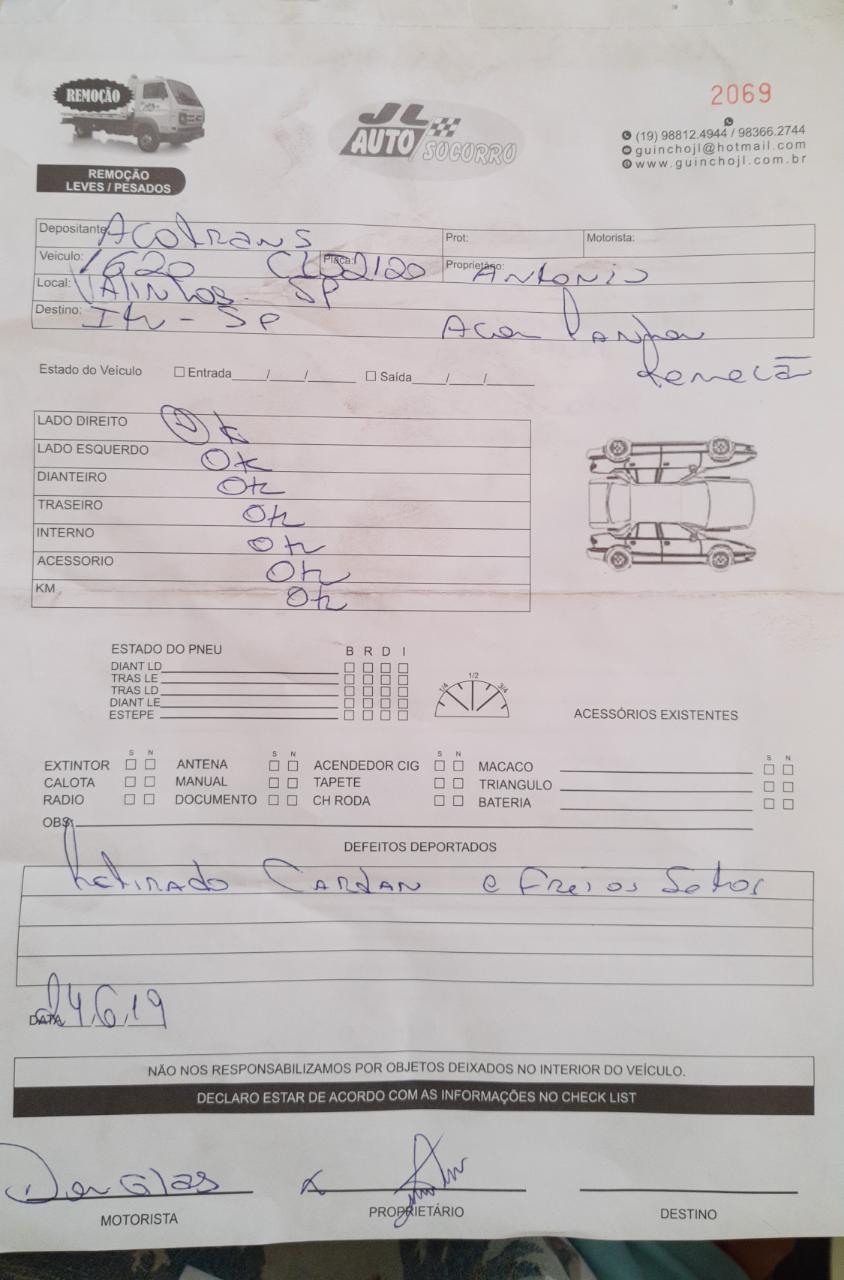 REMOÇÃO
REMOÇÃO
LEVES / PESADOS
JL
AUTO SOCORRO
2069
(19) 98812.4944 / 98366.2744
guinchojl@hotmail.com
www.guinchojl.com.br
Depositante: Acotrans Prot: Motorista:
Veículo: 1620 Placa: Proprietário: Antonio
Local: Valinhos - SP
Destino: Itu - SP
Estado do Veículo Entrada ___/___/___ Saída ___/___/___
LADO DIREITO Ok
LADO ESQUERDO OK
DIANTEIRO Ok
TRASEIRO Ok
INTERNO Ok
ACESSORIO Ok
KM Ok
ESTADO DO PNEU B R D I
DIANT LD
TRAS LE
TRAS LD
DIANT LE
ESTEPE
1/4 1/2 3/4
ACESSÓRIOS EXISTENTES
S N S N S N S N
EXTINTOR ANTENA ACENDEDOR CIG MACACO
CALOTA MANUAL TAPETE TRIANGULO
RADIO DOCUMENTO CH RODA BATERIA
OBS:
DEFEITOS DEPORTADOS
Retirado Cardan e Freios Soltos
DATA 24.6.19
NÃO NOS RESPONSABILIZAMOS POR OBJETOS DEIXADOS NO INTERIOR DO VEÍCULO.
DECLARO ESTAR DE ACORDO COM AS INFORMAÇÕES NO CHECK LIST
Douglas x
MOTORISTA PROPRIETÁRIO DESTINO